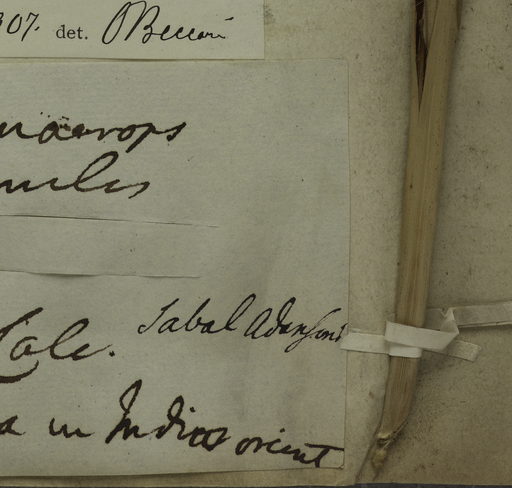 307. det. O Beccari
maerops
milis
Cole. Sabal Adansoni
a in Indiae orient